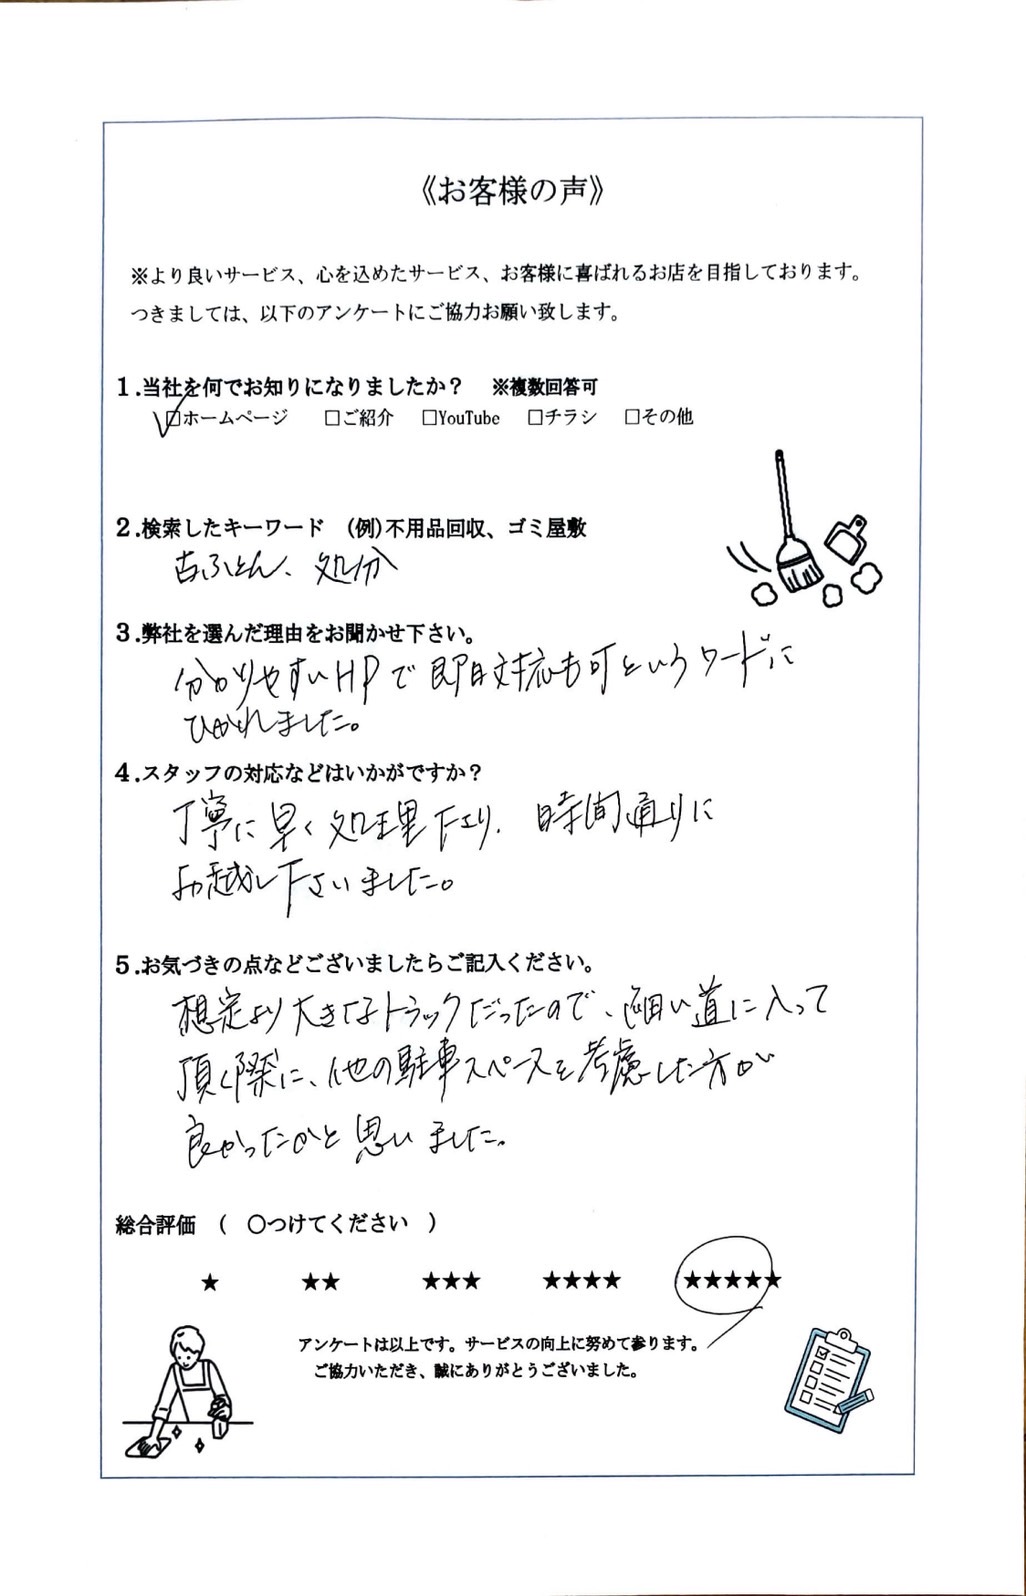 《お客様の声》
※より良いサービス、心を込めたサービス、お客様に喜ばれるお店を目指しております。
つきましては、以下のアンケートにご協力お願い致します。
1.当社を何でお知りになりましたか？　※複数回答可
☑ホームページ　□ご紹介　□YouTube　□チラシ　□その他
2.検索したキーワード　(例)不用品回収、ゴミ屋敷
古ふとん、処分
3.弊社を選んだ理由をお聞かせ下さい。
分かりやすいHPで即日対応も可というワードに
ひかれました。
4.スタッフの対応などはいかがですか？
丁寧に早く処理下さり、時間通りに
お越し下さいました。
5.お気づきの点などございましたらご記入ください。
想定より大きなトラックだったので、細い道に入って
頂く際に、他の駐車スペースを考慮した方が
良かったかと思いました。
総合評価　(　○つけてください　)
★　★★　★★★　★★★★　★★★★★
アンケートは以上です。サービスの向上に努めて参ります。
ご協力いただき、誠にありがとうございました。